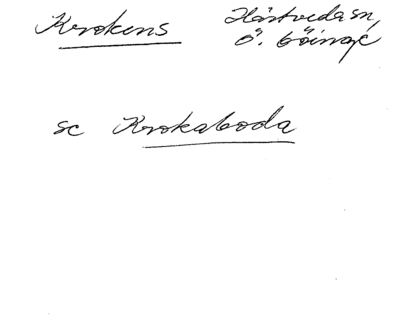 Krokens Hästveda sn,
Ö. Göinge
se Krokaboda